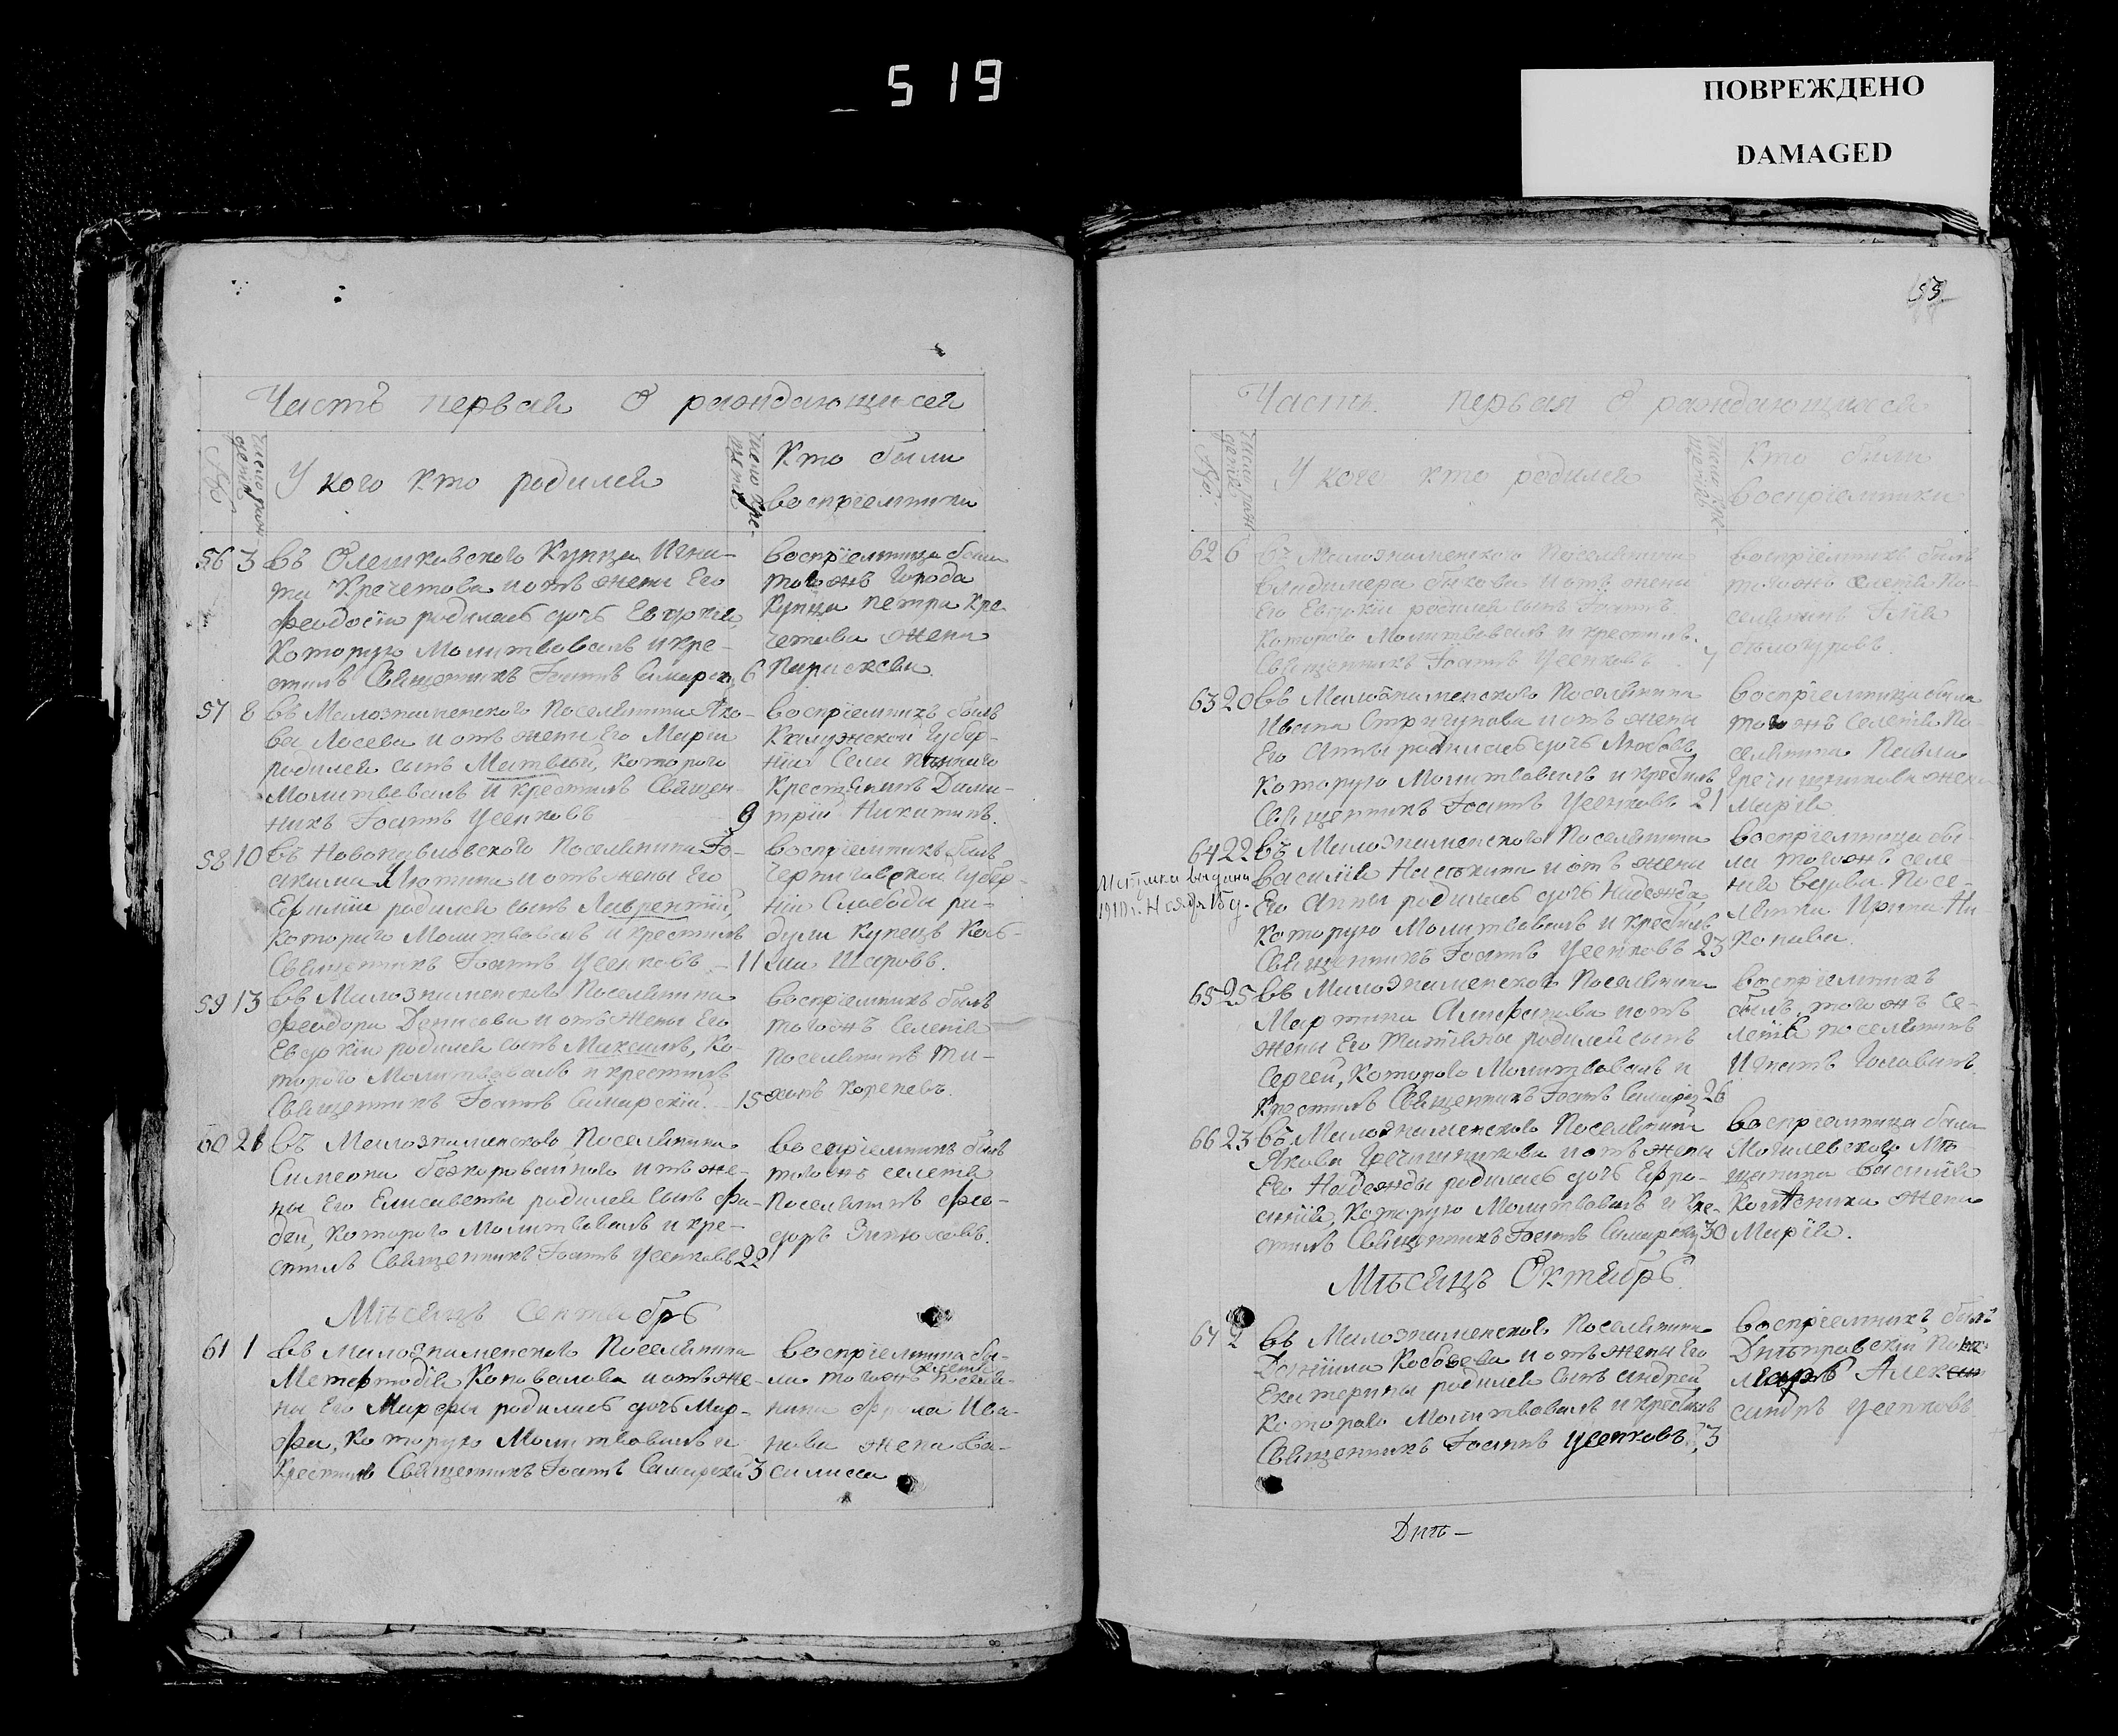 519
ПОВРЕЖДЕНО
DAMAGED
Часть первая О раждающихся
№
Число рождений
У кого кто родился
Число крещения
Кто были
воспрiемники
56 3 въ Олешковскаго Купца Игна-
та Кречетова и отъ жены Его
Феодосiи родилась дочь Евдокiя,
Которую Молитвовалъ и кре-
стилъ Священникъ Iоаннъ Самарск. 6
воспрiемница была
тогожъ Города
Купца Петра Кре-
четова жена
Параскева.
57 8 въ Малознаменского Поселянина Яко-
ва Лосева и отъ жены Его Марiи
родился сынъ Матвѣй, которого
Молитвовалъ и крестилъ Священ-
никъ Iоаннъ Усенковъ 9
воспрiемникъ былъ
Калужской Губер-
нiи Села
Крестьянинъ Дими-
трiй Никитинъ.
58 10 въ Новопавловского Поселянина Iо-
акима Лютина и отъ жены Его
Ефимiи родился сынъ Лаврентiй,
которого Молитвовалъ и крестилъ
Священникъ Iоаннъ Усенковъ 11
воспрiемникъ былъ
Черниговской Губер-
нiи Слободы ра-
дули Купецъ Коз-
ма Шаровъ.
59 13 въ Малознаменского Поселянина
Феодора Денисова и отъ жены Его
Евдокiи родился сынъ Михаилъ, Ко-
торого Молитвовалъ и крестилъ
Священникъ Iоаннъ Самарскiй. 15
воспрiемникъ былъ
тогожъ Селенiя
поселянинъ Ти-
хонъ Кореневъ.
60 21 въ Малознаменского Поселянина
Симеона безкоровайного и отъ же-
ны Его Елисаветы родился сынъ Фа-
дей, которого Молитвовалъ и кре-
стилъ Священникъ Iоаннъ Усенковъ 22
воспрiемникъ былъ
тогожъ селенiя
Поселянинъ Фео-
доръ
Мѣсяцъ Сентябрь
61 1 въ Малознаменского Поселянина
Мефодiя Коновалова и отъ же-
ны Его Марфы родилась дочь Мар-
фа, которую Молитвовалъ и
Крестилъ Священникъ Iоаннъ Самарскiй 3
воспрiемница бы-
ла тогожъ селенiя Поселя-
нина Фрола Ива-
нова жена Ва-
силисса
53
Часть первая О раждающихся
№
Число рожденiй
У кого кто родился
Число крещенiя
Кто были
Воспрiемники
62 6 въ Малознаменского Поселянина
Владимера быкова и отъ жены
Его Евдокiи родился сынъ Iоаннъ
Которого Молитвовалъ и крестилъ
Священникъ Iоаннъ Усенковъ 7
воспрiемникъ былъ
тогожъ селенiя По-
селянинъ Iлiя
бѣлогуровъ.
63 20 въ Малознаменского Поселянина
Ивана Стригунова и отъ жены
Его Анны родилась дочь Любовь,
Которую Молитвовалъ и крестилъ
Священникъ Iоаннъ Усенковъ 21
Воспрiемница была
тогожъ Селенiя По-
селянина Павла
Гречишникова жена
Марiя
64 22 въ Малознаменского Поселянина
Василiя Насѣкина и отъ жены
Его Анны родилась дочь Надежда,
Которую Молитвовалъ и крестилъ
Священникъ Iоаннъ Усенковъ 23
Метрика выдана
1910 г. Ноября 15 д.
воспрiемница бы-
ла тогожъ селе-
нiя вдова Посе-
лянка Ирина
65 25 въ Малознаменского Поселянина
Мартина и отъ
жены Его Татiяны родился сынъ
Сергей, Которого Молитвовалъ и
Крестилъ Священникъ Iоаннъ Самарск 26
воспрiемникъ
былъ тогожъ Се-
ленiя поселянинъ
Игнатъ Головинъ.
66 23 въ Малознаменского Поселянина
Якова Гречишникова и отъ жены
Его Надежды родилась дочь Ефро-
синiя, Которую Молитвовалъ и Кре-
стилъ Священникъ Iоаннъ Самарскiй 30
воспрiемница была
Могилевского Мѣ-
щанина Василiя
жена
Марiя.
Мѣсяцъ Октябрь
67 2 въ Малознаменского Поселянина
Данiила и отъ жены Его
Екатерины родился сынъ Андрей
Которого Молитвовалъ и крестилъ
Священникъ Iоаннъ Усенковъ. 3
Воспрiемникъ былъ
Днѣпровскiй
Алек
сандръ Усенковъ
Днѣ-